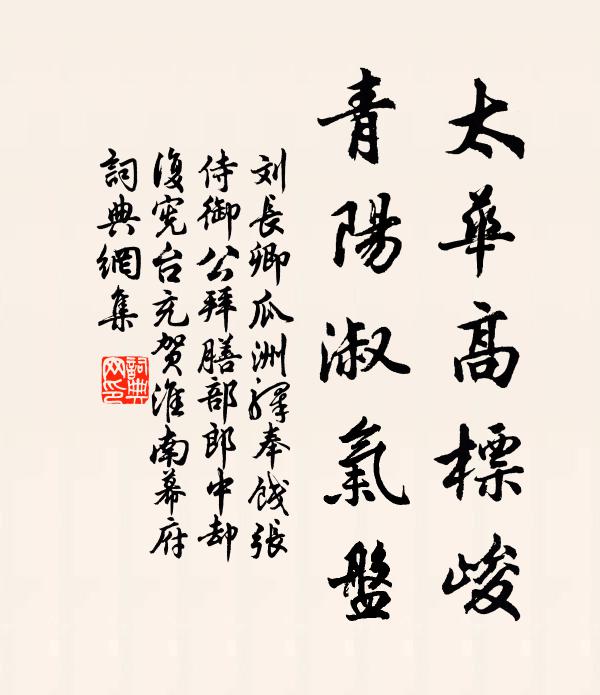 太華高標峻
青陽淑氣盤
刘長卿瓜洲驛奉餞張
侍御公拜膳部郎中却
復宪台充贺淮南幕府
詞典網集
詞典网印